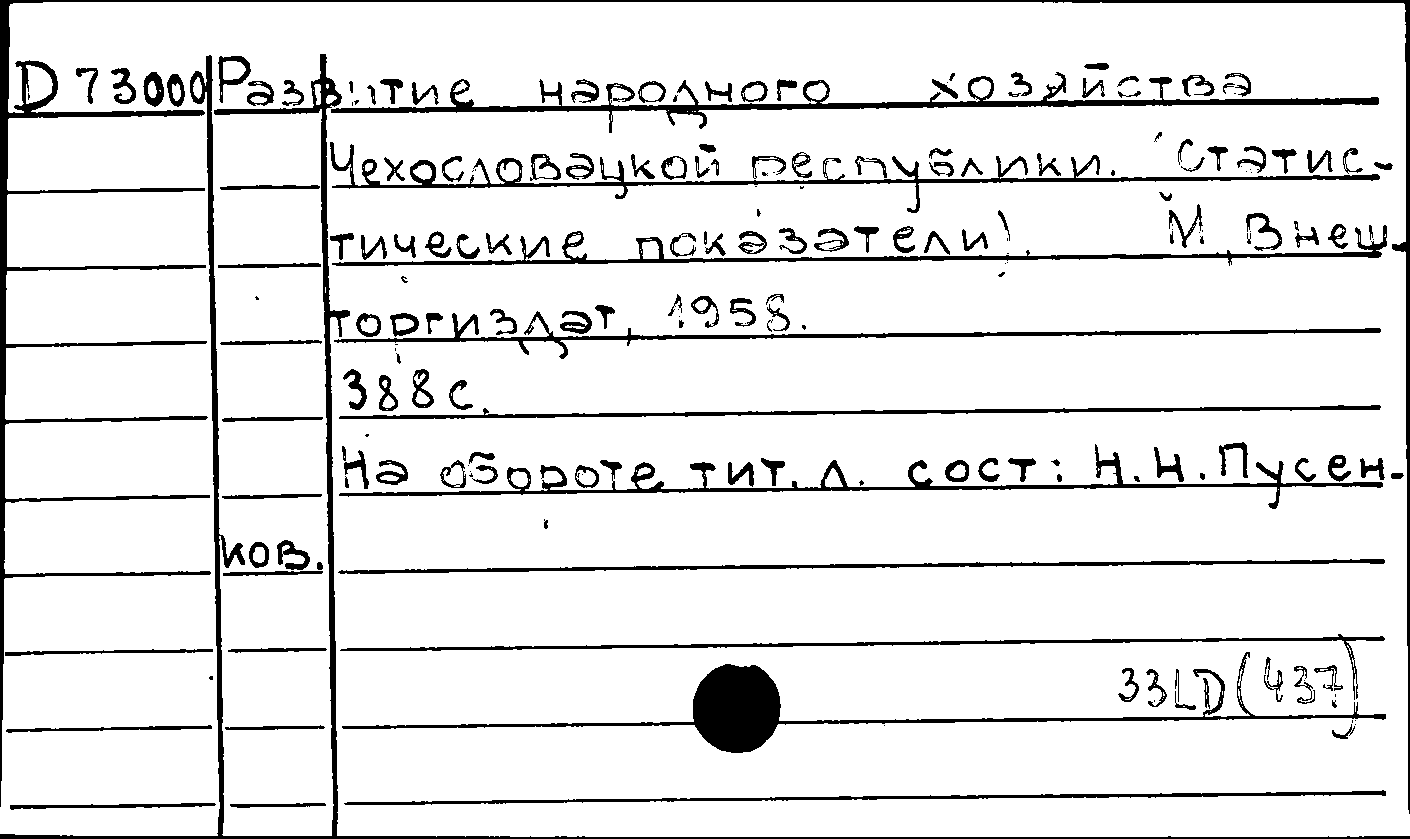 D 73000 Развитие народного хозяйства
Чехословацкой республики. (Статис-
тические показатели). М., Внеш-
торгиздат, 1958.
388 с.
На обороте тит. л. сост: Н. Н. Пусен-
ков.
33LD(437)